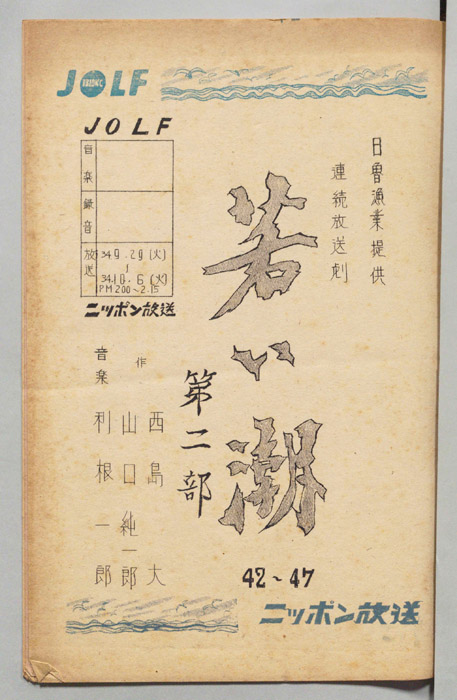 JOLF
JOLF
音楽
録音
放送
34 9.29 (火)
34.10.6 (火)
PM 2.00~2.15
ニッポン放送
日魯漁業提供
連続放送劇
若い潮
第二部
42~47
作
西島 大
山口純一郎
音楽
利根一郎
ニッポン放送